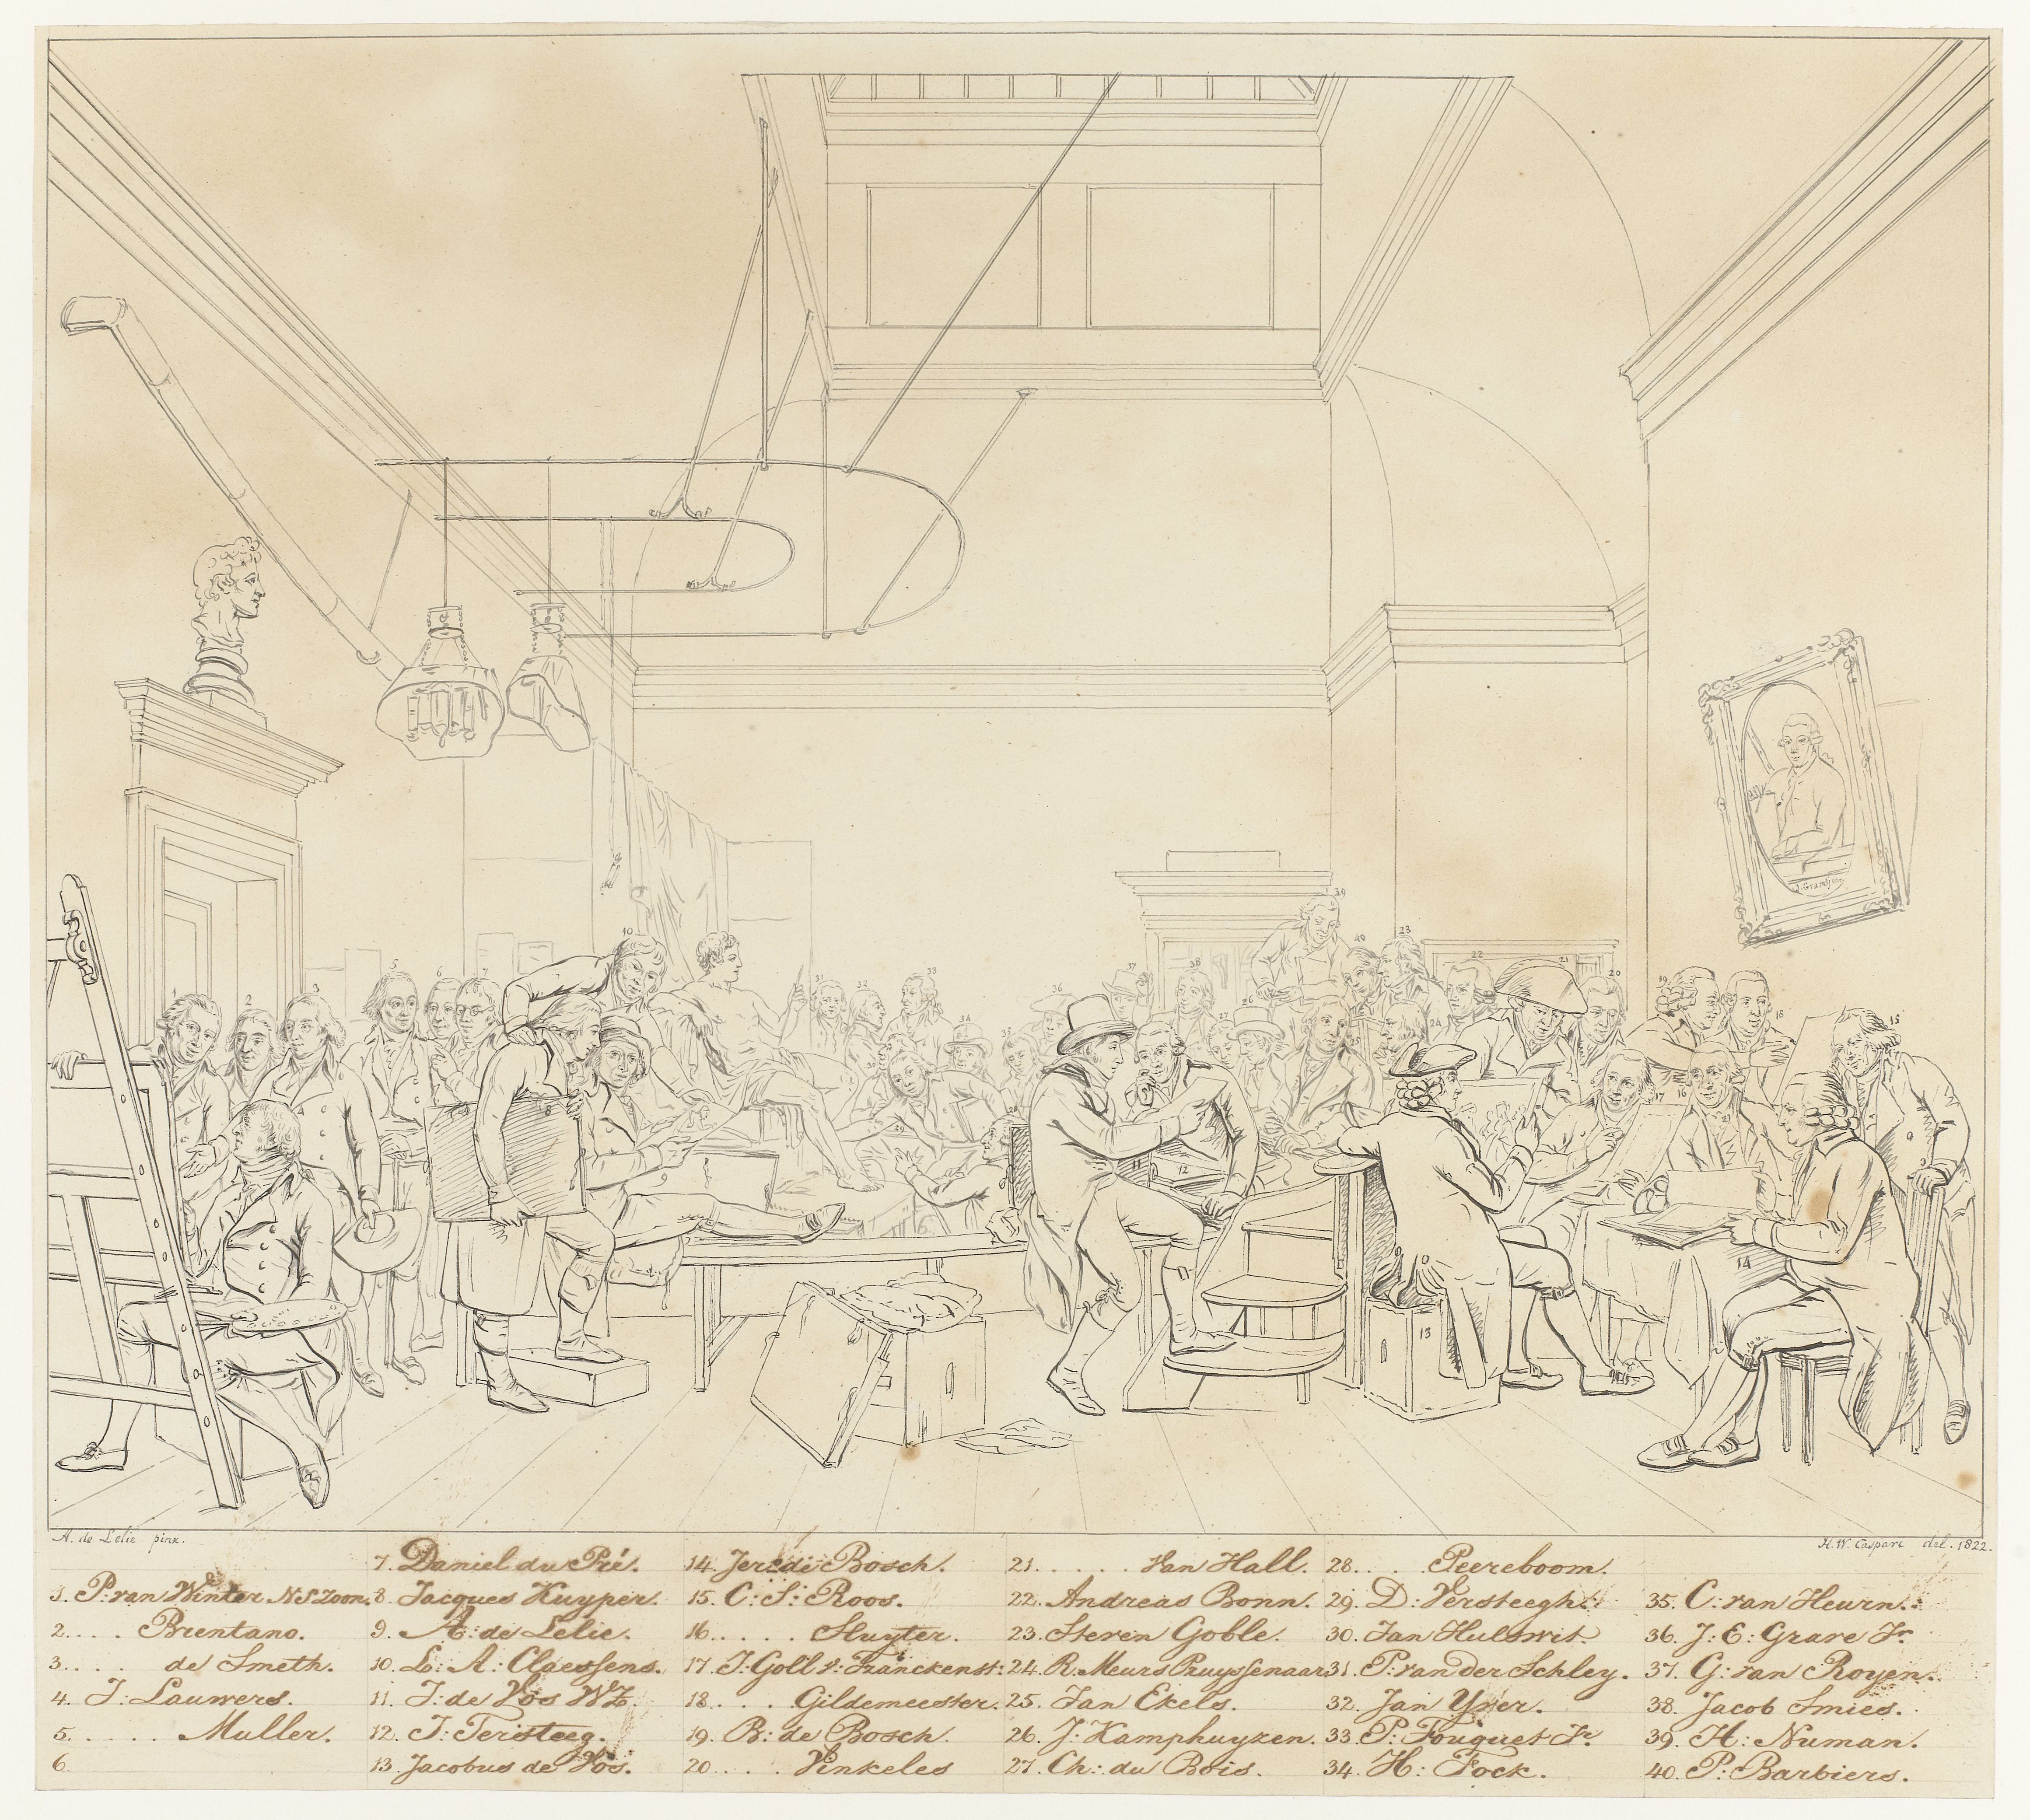 A. de Lelie pinx.
H. W. Caspari del. 1822.
1. P: van Winter N.S.Zoon.
2. . . . Brentano.
3. . . . de Smeth.
4. J: Lauwers.
5. . . . . Muller.
6.
7. Daniel du Pré.
8. Jacques Kuyper.
9. A: de Lelie.
10. L: A: Claessens.
11. J: de Vos WZ.
12. J: Teristeeg.
13. Jacobus de Vos.
14. Jer: de Bosch.
15. C: S: Roos.
16. . . . . Sluyter.
17. J: Goll v: Franckenst:
18. . . . Gildemeester.
19. B: de Bosch.
20. . . . Vinkeles
21. . . . . . Van Hall.
22. Andreas Bonn.
23. Steven Goble.
24. R. Meurs Pruyssenaar
25. Jan Ekels.
26. J: Kamphuyzen.
27. Ch: du Bois.
28. . . . Peereboom.
29. D: Versteegh.
30. Jan Hulswit.
31. P: van Der Schley.
32. Jan Yver.
33. P: Fouquet Jr.
34. H: Fock.
35. C: van Heurn.
36. J: E: Grave Jr.
37. G: van Royen.
38. Jacob Smies.
39. H: Numan.
40. P: Barbiers.